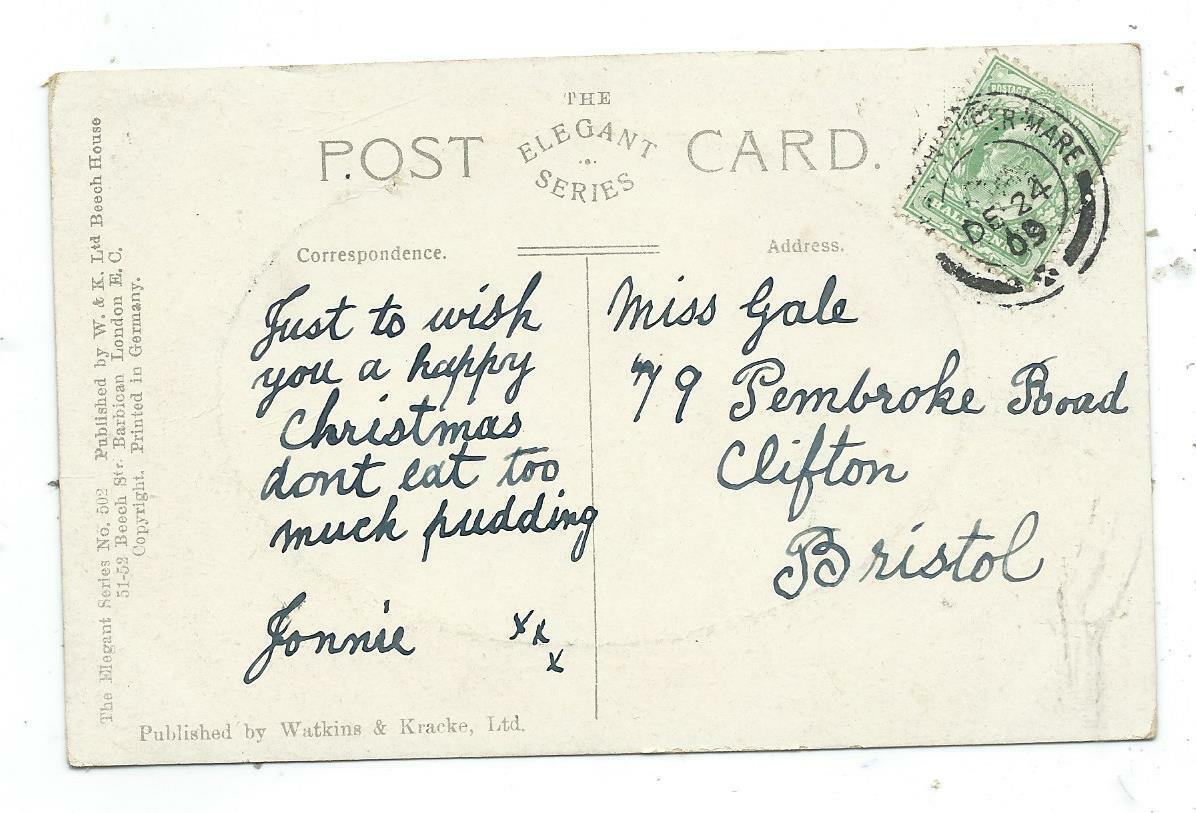 THE
POST ELEGANT CARD.
SERIES
Correspondence.
Address.
Just to wish
you a happy
Christmas
dont eat too
much pudding
Jonnie x x x
Miss Gale
79 Pembroke Road
Clifton
Bristol
POSTAGE
R-MARE
DE 24
09
The Elegant Series No. 502 Published by W. & K. Ltd Beech House
51-52 Beech Str. Barbican London E. C.
Copyright. Printed in Germany.
Published by Watkins & Kracke, Ltd.